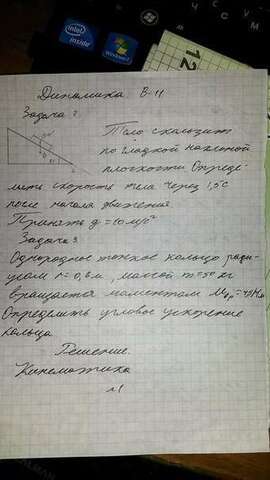 Динамика В-11
Задача 2
Тело скользит
по гладкой наклонной
плоскости. Опреде-
лить скорость тела через 1,5с
после начала движения.
Принять g = 10 м/с²
Задача 3
Однородное тонкое кольцо ради-
усом r = 0,8 м, массой m = 50 кг
вращается моментом
Определить угловое ускорение
кольца
Решение.
Кинематика
№1
intel
inside
Windows 7
12